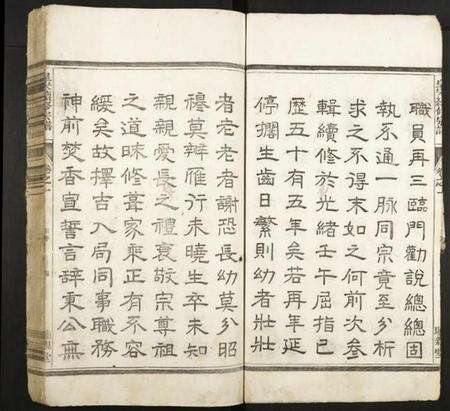 職員再三臨門勸說總總固
執系通一脉同宗竟至分析
求之不得末如之何前次叅
輯續修於光緒壬午屈指已
歷五十有五年矣若再年延
停擱生齒日繁則幼者壯壯
者老老者謝恐長幼莫分昭
穆莫辨雁行未曉生卒未知
親親愛長之禮衰敬宗尊祖
之道昧修葺家乘正有不容
緩矣故擇吉入局同事職務
神前焚香宣誓言辭秉公無